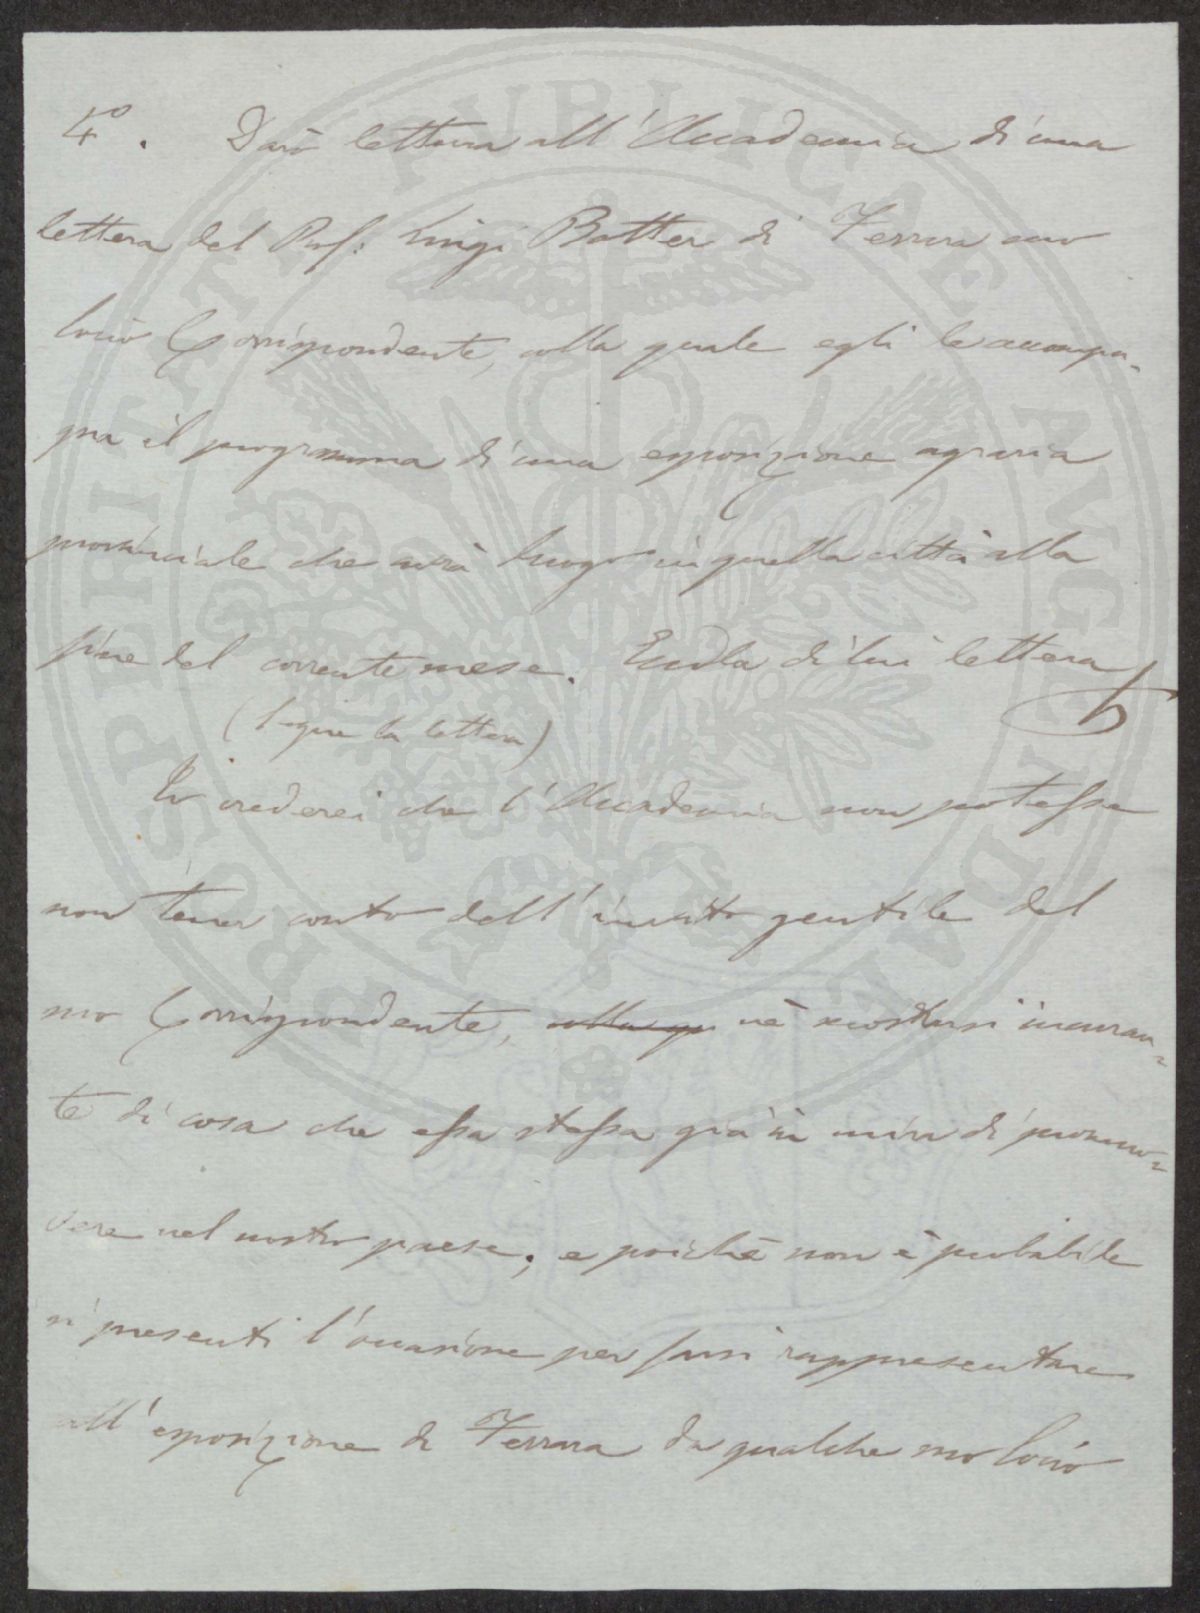 4°. Darò lettura all'Accademia di una
lettera del Prof: Luigi Botter di Ferrara suo
Socio Corrispondente, colla quale egli le accompa-
gna il programma di una esposizione agraria
provinciale che avrà luogo in quella città alla
fine del corrente mese. Ecco la di lui lettera
(legge la lettera)
Io crederei che l'Accademia non potesse
non tener conto dell'invito gentile del
suo Corrispondente, né mostrarsi incuran-
te di cosa che essa stessa già in mira di promuo-
vere nel nostro paese; e poiché non è probabile
si presenti l'occasione per farsi rappresentare
all'esposizione di Ferrara da qualche suo Socio
PROSPERITATI PUBLICAE AUGENDAE